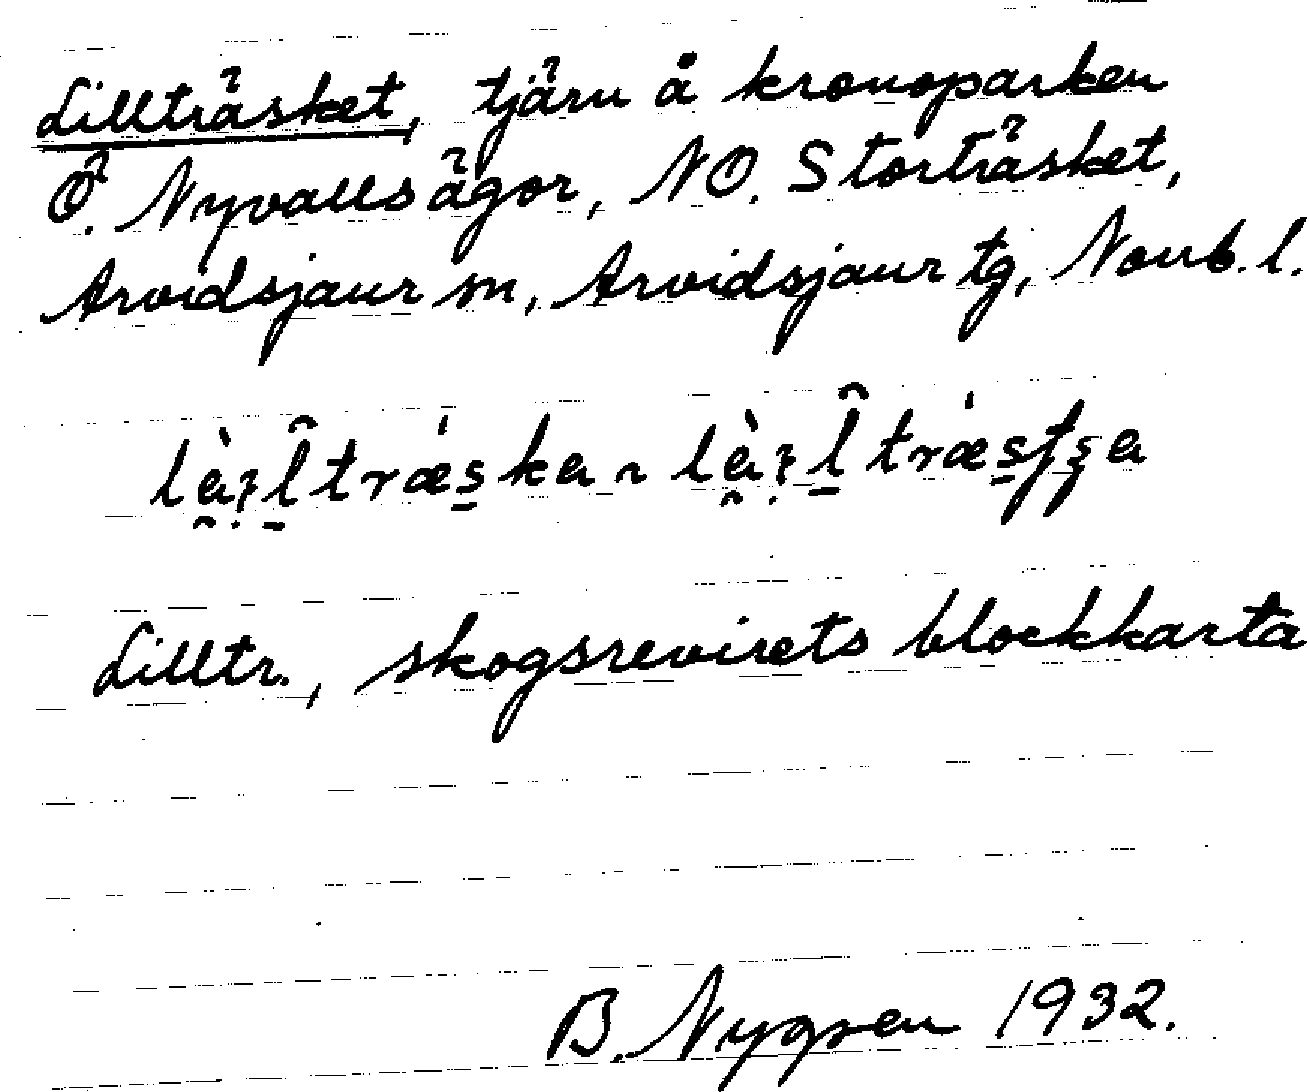 Lillträsket, tjärn å kronoparken
Ö. Nyvallsägor, NO. Storträsket,
Arvidsjaur sn, Arvidsjaur tg, Norrb. l.
Lilltr., skogsrevirets blockkarta
B. Nygren 1932.